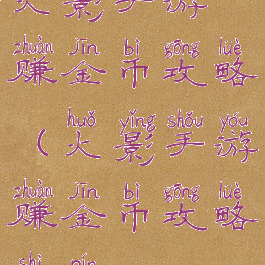 火影手游
zhuàn jīn bì gōng lüè
赚金币攻略
huǒ yǐng shǒu yóu
（火影手游
zhuàn jīn bì gōng lüè
赚金币攻略
shì pín